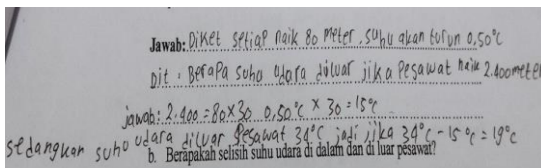 Jawab: Diket setiap naik 80 meter, suhu akan turun 0,50°C
Dit : Berapa suhu udara diluar jika pesawat naik 2.400 meter
jawab: 2.400 = 80 x 30 0,50°C x 30 = 15°C
sedangkan suhu udara diluar pesawat 34°C jadi jika 34°C - 15°C = 19°C
b. Berapakah selisih suhu udara di dalam dan di luar pesawat?